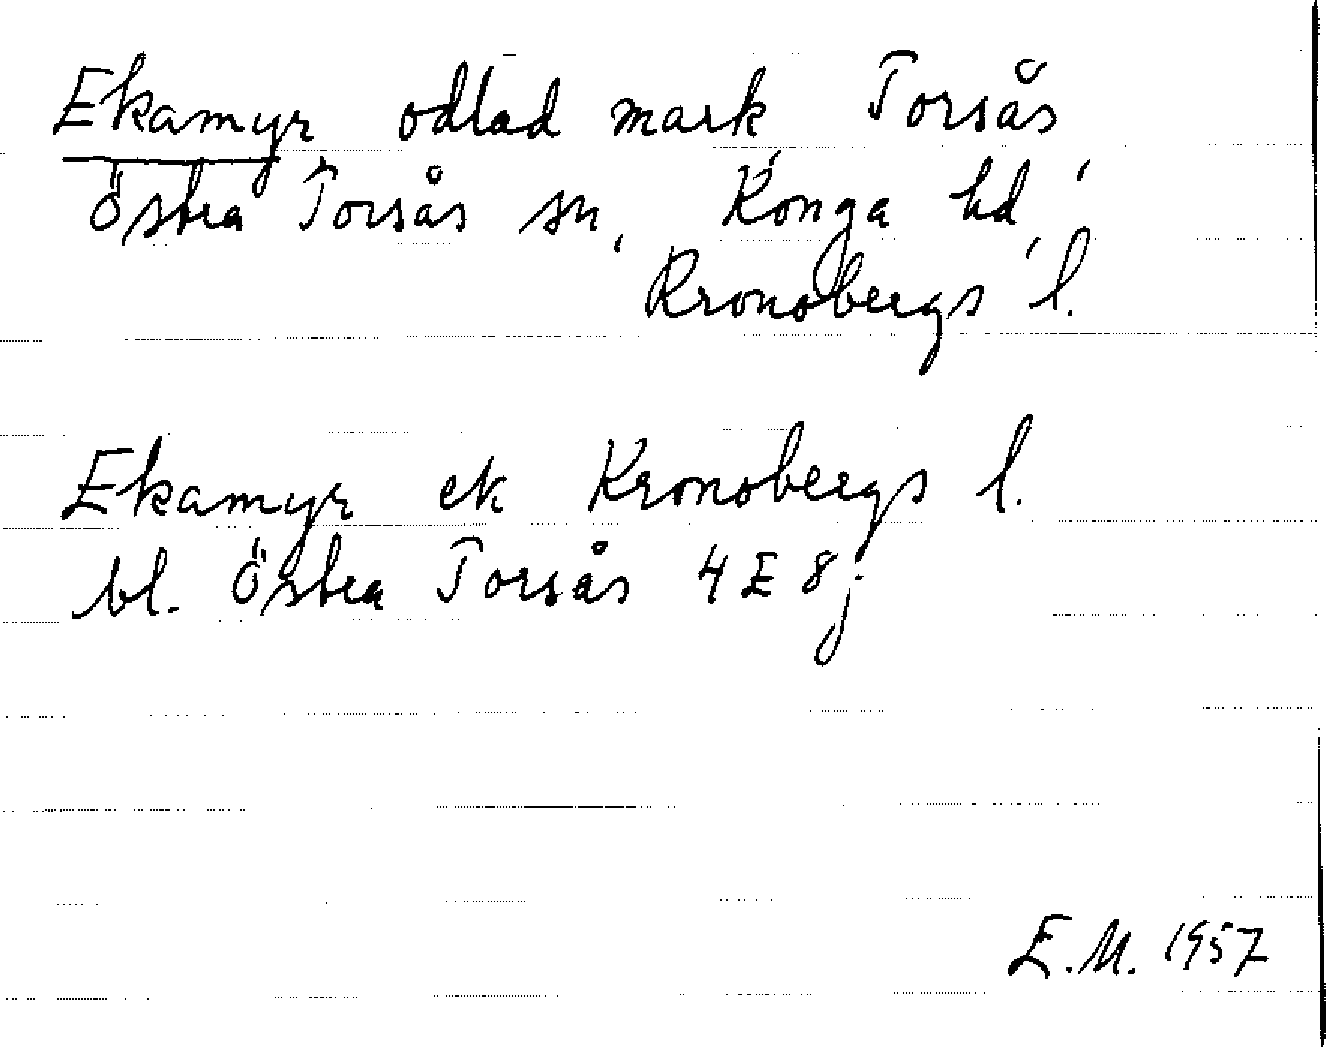 Ekamyr odlad mark Torsås,
Östra Torsås sn, Konga hd,
Kronobergs l.
Ekamyr ek Kronobergs l.
bl. Östra Torsås 4E 8j
E.M. 1957